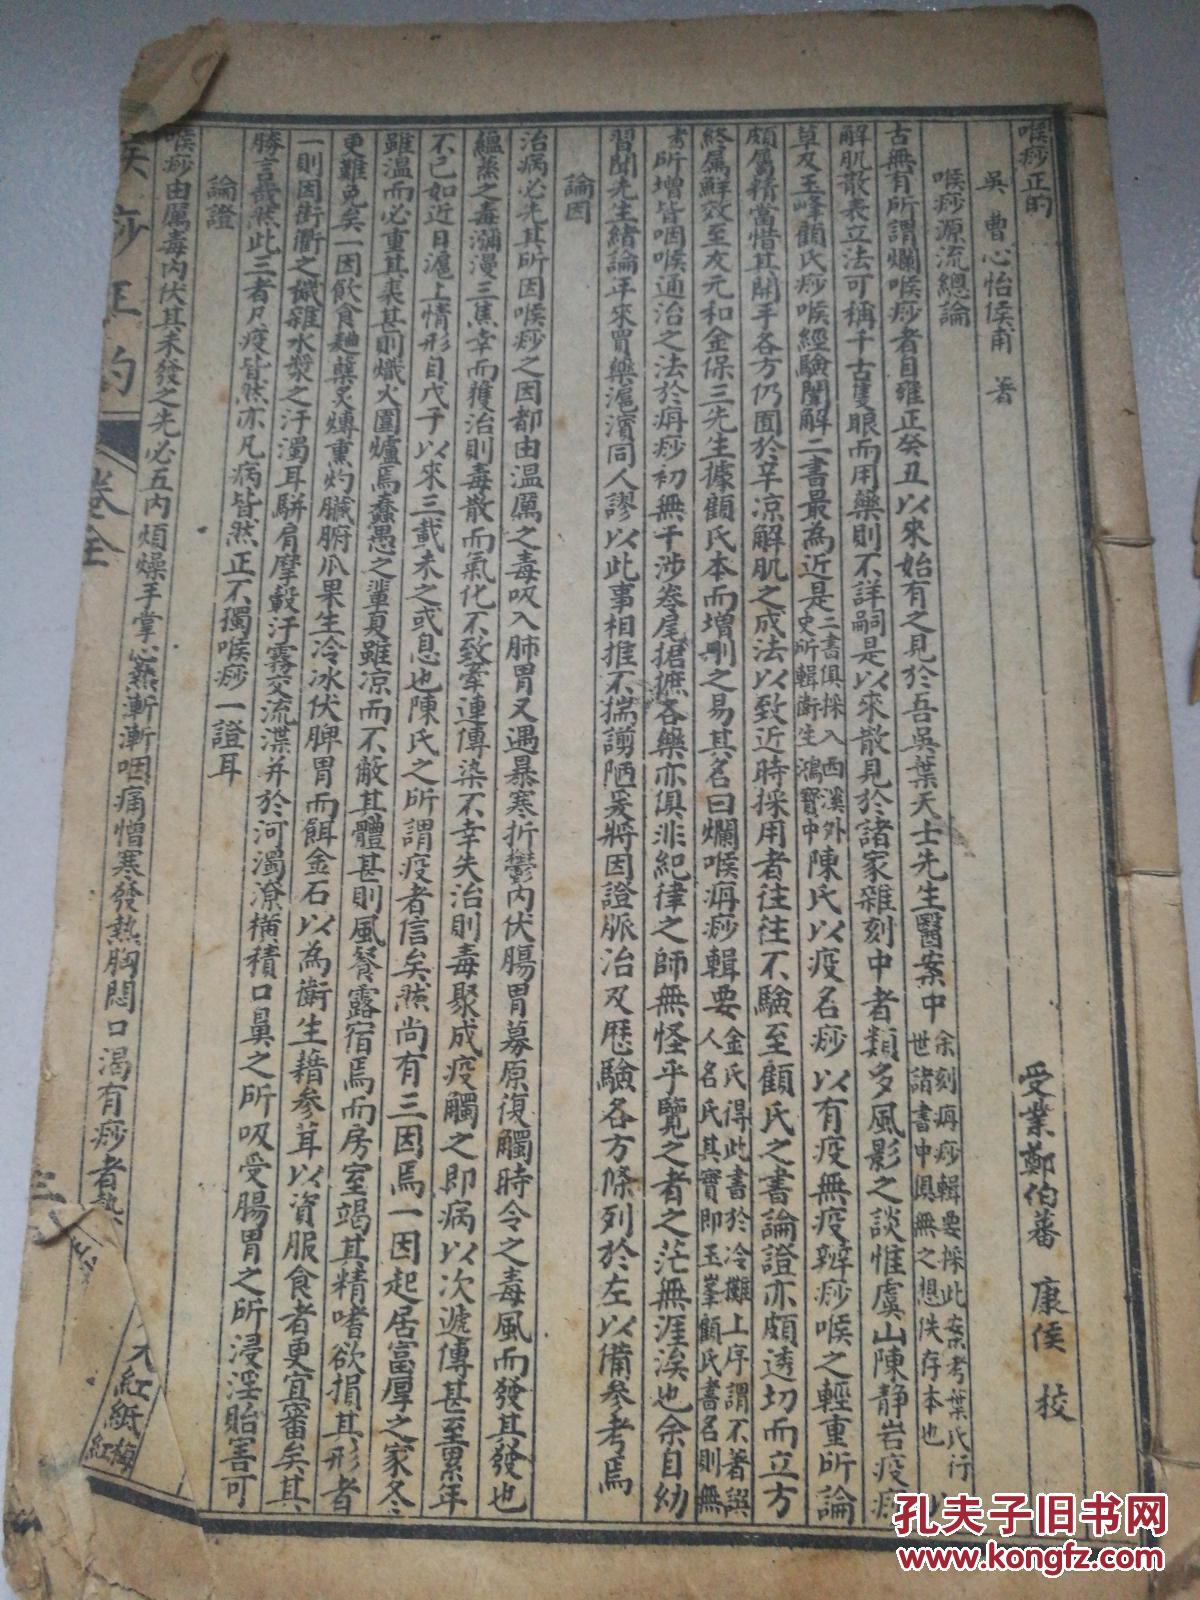 喉痧正的
吳 曹心怡侯甫 著
受業鄭伯蕃 康侯 校
喉痧源流總論
古無有所謂爛喉痧者自雍正癸丑以來始有之見於吾吳葉天士先生醫案中余刻痧輯要採此案考葉氏行世諸書中俱無之想佚存本也
解肌散表立法可稱千古隻眼而用藥則不詳嗣是以來散見於諸家雜刻中者類多風影之談惟虞山陳靜岩疫痧
草及玉峰顧氏痧喉經驗闡解二書最為近是二書俱採入西溪外史所輯衛生鴻寶中陳氏以疫名痧以有疫無疫辨痧喉之輕重所論
頗屬精當惜其開手各方仍囿於辛凉解肌之成法以致近時採用者往往不驗至顧氏之書論證亦頗透切而立方
終屬鮮效至友元和金保三先生據顧氏本而增刪之易其名曰爛喉痧輯要金氏得此書於冷攤上序謂不著譔人名氏其實即玉峯顧氏書名則無
考所增皆咽喉通治之法於痧初無干涉卷尾捃摭各藥亦俱非紀律之師無怪乎覽之者之茫無涯涘也余自幼
習聞先生緒論年來買藥滬濱同人謬以此事相推不揣謭陋爰將因證脈治及歷驗各方條列於左以備參考焉
論因
治病必先其所因喉痧之因都由溫厲之毒吸入肺胃又遇暴寒折鬱內伏腸胃募原復觸時令之毒風而發其發也
蘊蒸之毒瀰漫三焦幸而獲治則毒散而氣化不致牽連傳染不幸失治則毒聚成疫觸之即病以次遞傳甚至累年
不已如近日滬上情形自戊子以來三載未之或息也陳氏之所謂疫者信矣然尚有三因焉一因起居富厚之家冬
雖溫而必重其裘甚則熾火圍爐焉蠢愚之輩夏雖凉而不蔽其體甚則風餐露宿焉而房室竭其精嗜欲損其形者
更難免矣一因飲食麯蘗炙煿熏灼臟腑瓜果生冷冰伏脾胃而餌金石以為衛生藉參茸以資服食者更宜審矣其
一則因街衢之穢雜水漿之汙濁耳駢肩摩轂汙霧交流渫并於河濁潦橫積口鼻之所吸受腸胃之所浸淫貽害可
勝言哉然此三者凡疫皆然亦凡病皆然正不獨喉痧一證耳
論證
喉痧由厲毒內伏其未發之先必五內煩燥手掌心熱漸漸咽痛憎寒發熱胸悶口渴有痧者熱
痧正的
卷全
大紅紙
梅紅
孔夫子旧书网
www.kongfz.com